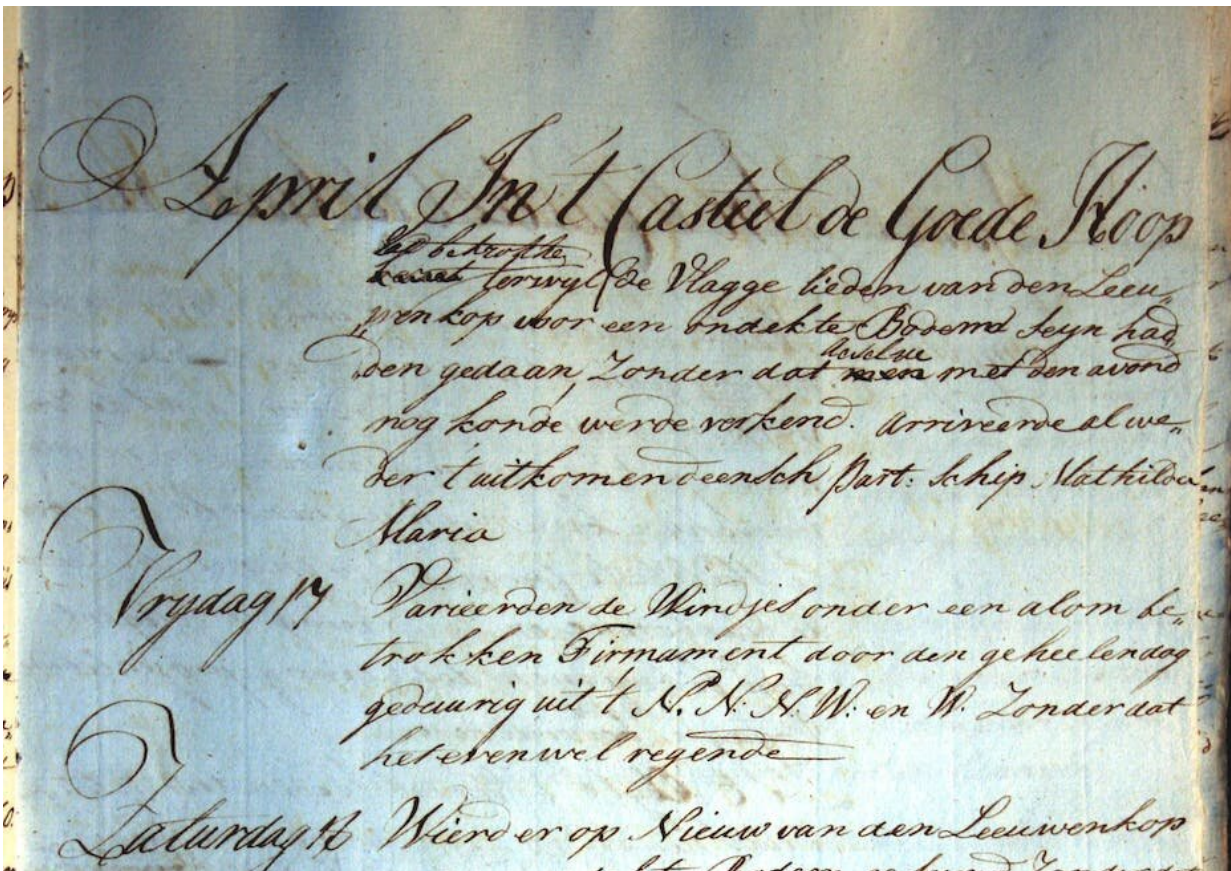 April In't Casteel de Goede Hoop
terwyl de Vlagge lieden van den Leeu„
„wenkop voor een ondekte Bodemd seyn had„
„den gedaan, Zonder dat men met den avond
deselve
nog konde werde verkend. Arriveerde alwe„
der t uitkomend deensch Part: Schip Mathilda
Maria
Vrydag 17 Varieerden de Windjes onder een alom be„
trokken Firmament door den geheelen dag
geduurig uit 't N. N. N. W: en W. Zonder dat
het evenwel regende
Zaturdag 18 Wierd er op Nieuw van den Leeuwenkop